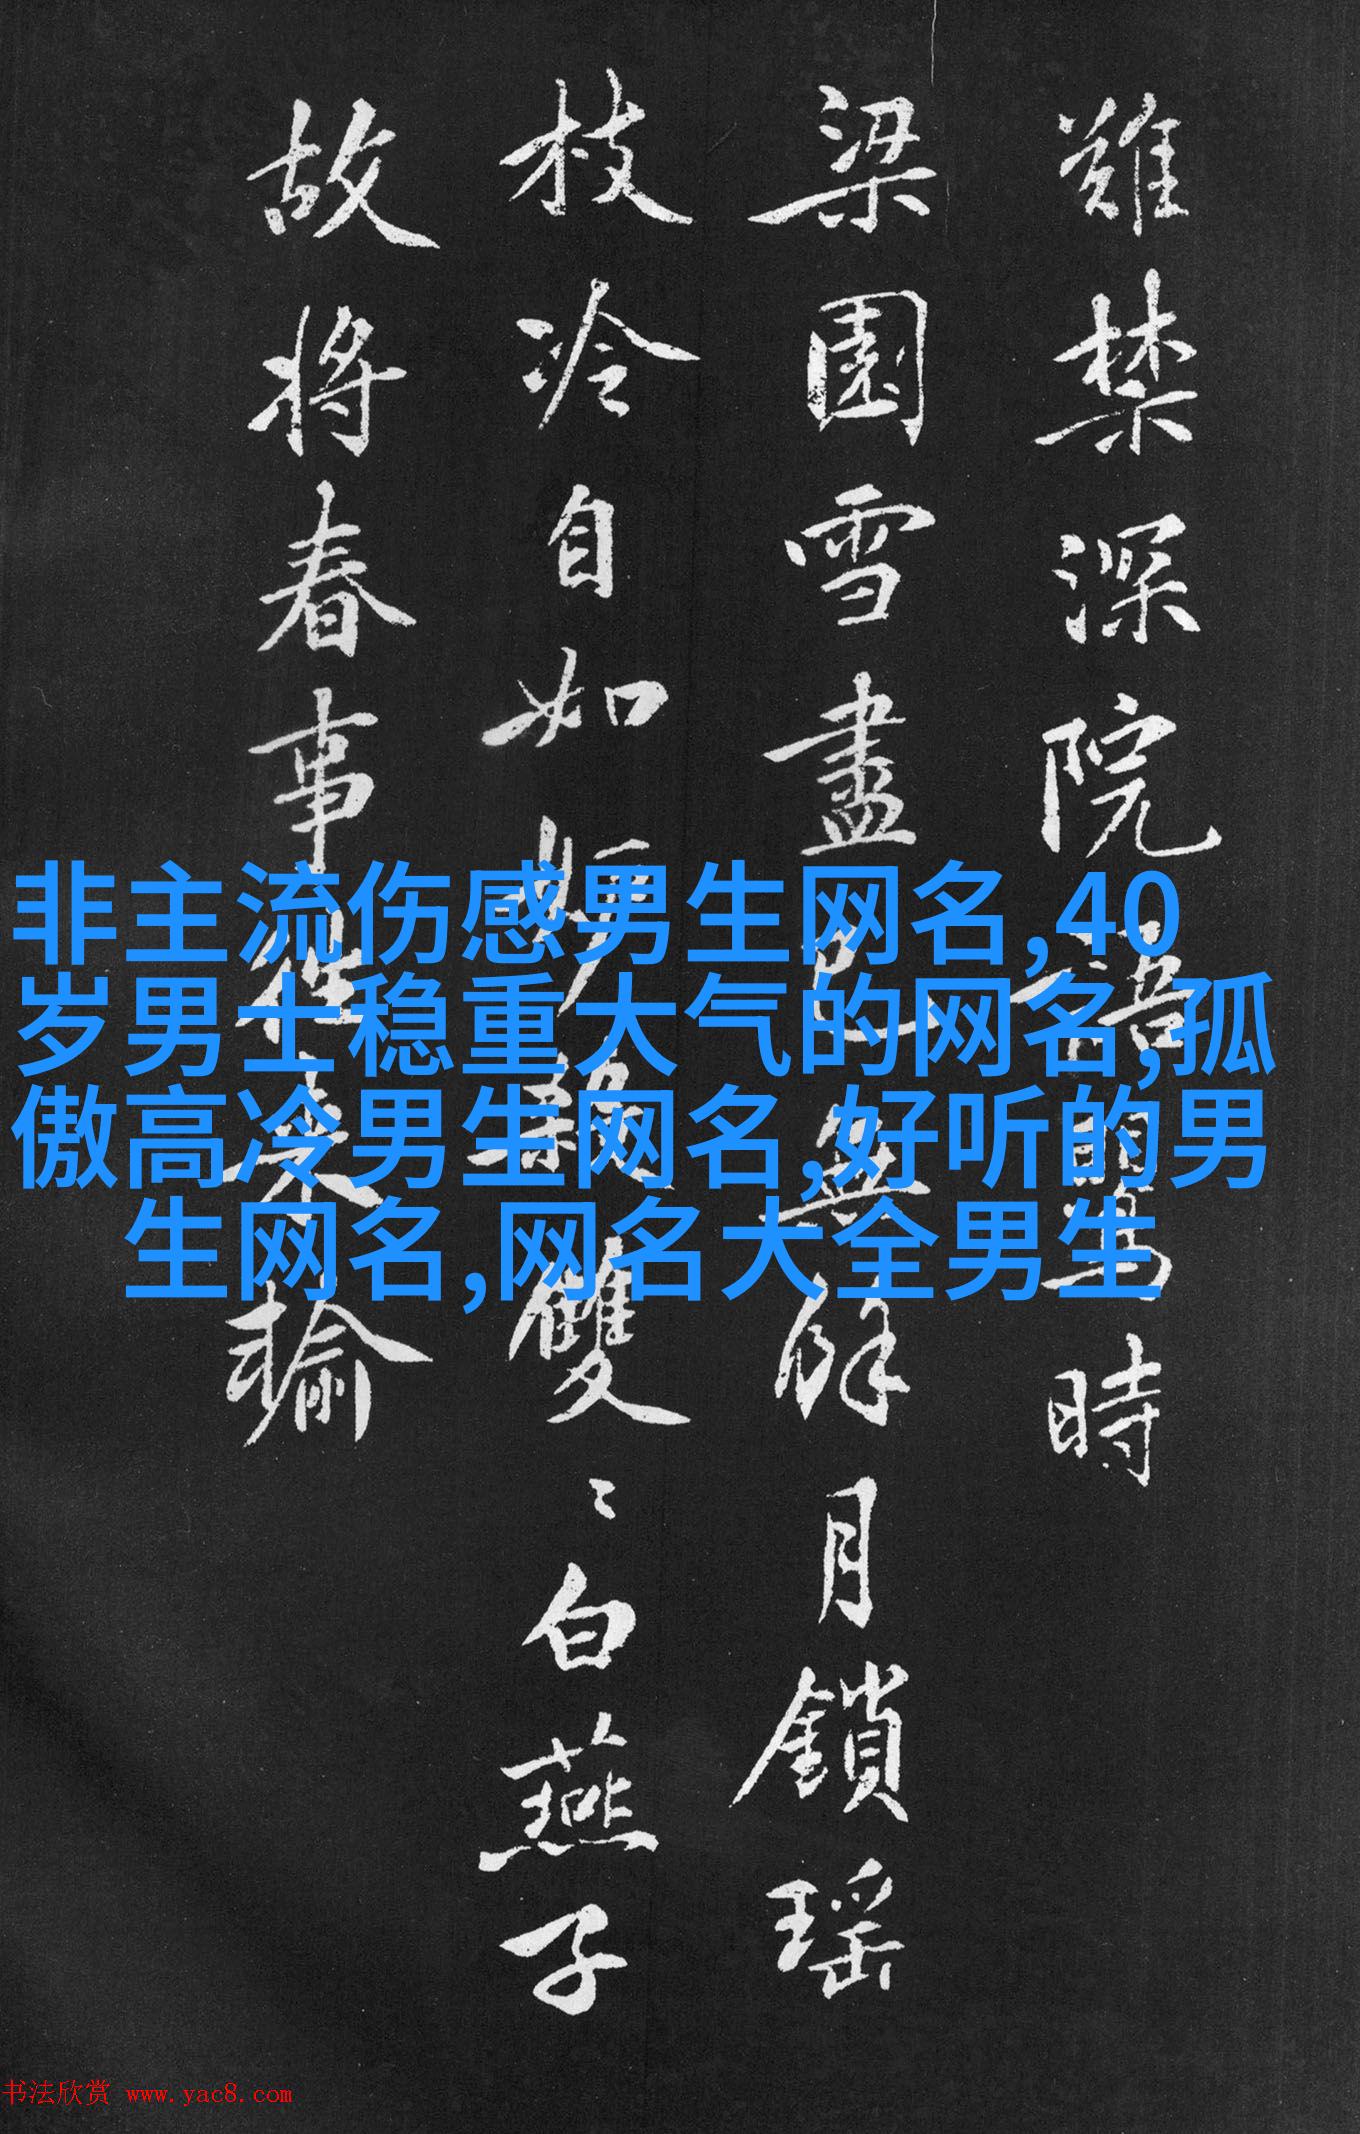 難禁深院語鶯時
梁園雪盡已無餘月鎖瑶
枝冷自如妒殺雙〻白燕子
故將春事往來輸
非主流伤感男生网名,40
岁男士稳重大气的网名,孤
傲高冷男生网名,好听的男
生网名,网名大全男生
书法欣赏 www.yac8.com